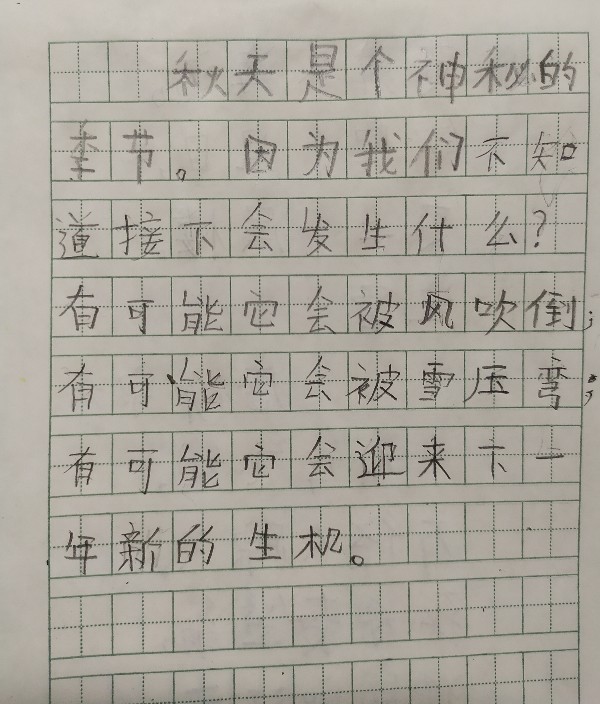 秋天是个神秘的
季节。因为我们不知
道接下会发生什么？
有可能它会被风吹倒；
有可能它会被雪压弯；
有可能它会迎来下一
年新的生机。